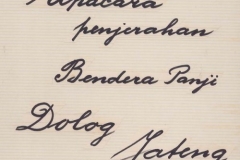 Upacara
penjerahan
Bendera Panji
Dolog
Jateng